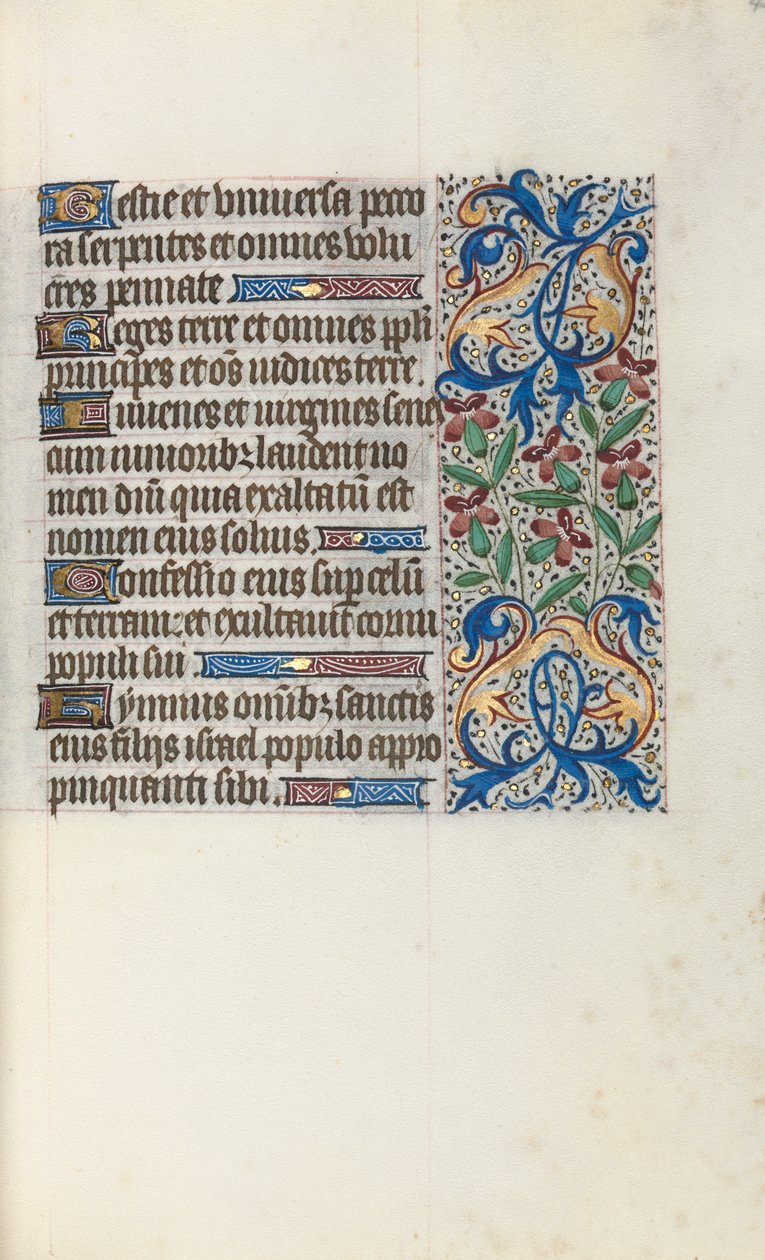 Bestie et vniuersa peco
ra serpentes et omnes volu
cres pennate
Reges terre et omnes ppl̄i
principes et om̄s iudices terre.
Iuuenes et uirgines senes
cum iunioribꝫ laudent no
men dn̄i quia exaltatū est
nomen eius solius.
Confessio eius suꝑ celū
et terram: et exultauit cornu
populi sui
Hymnus om̄ibꝫ sanctis
eius filijs israel populo appro
pinquanti sibi.